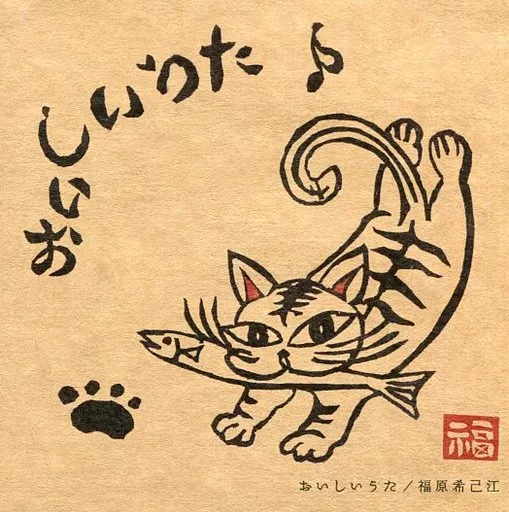 おいしいうた♪
福
おいしいうた/福原希己江